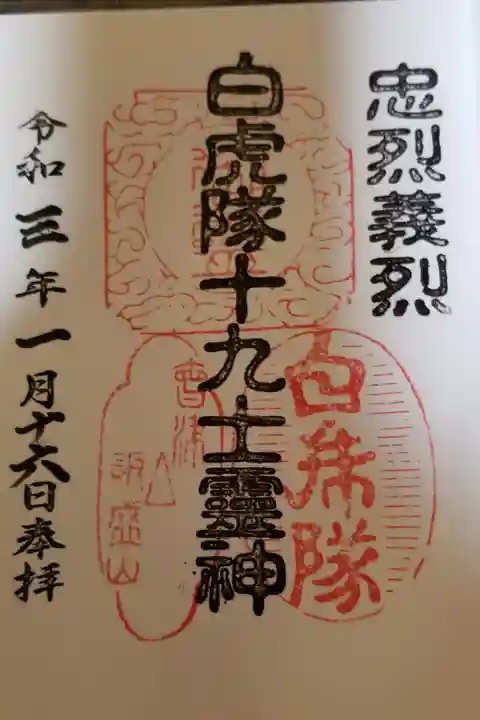 忠烈義烈
白虎隊十九士靈神
白虎隊
會津
飯盛山
令和三年一月十六日奉拝